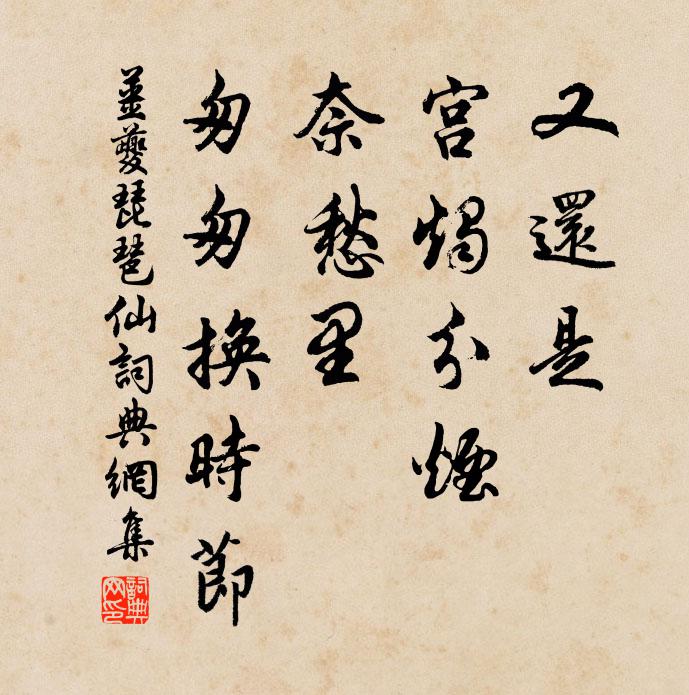 又還是
宫燭分煙
奈愁里
匆匆換時節
薑夔琵琶仙詞典網集
詞典网印